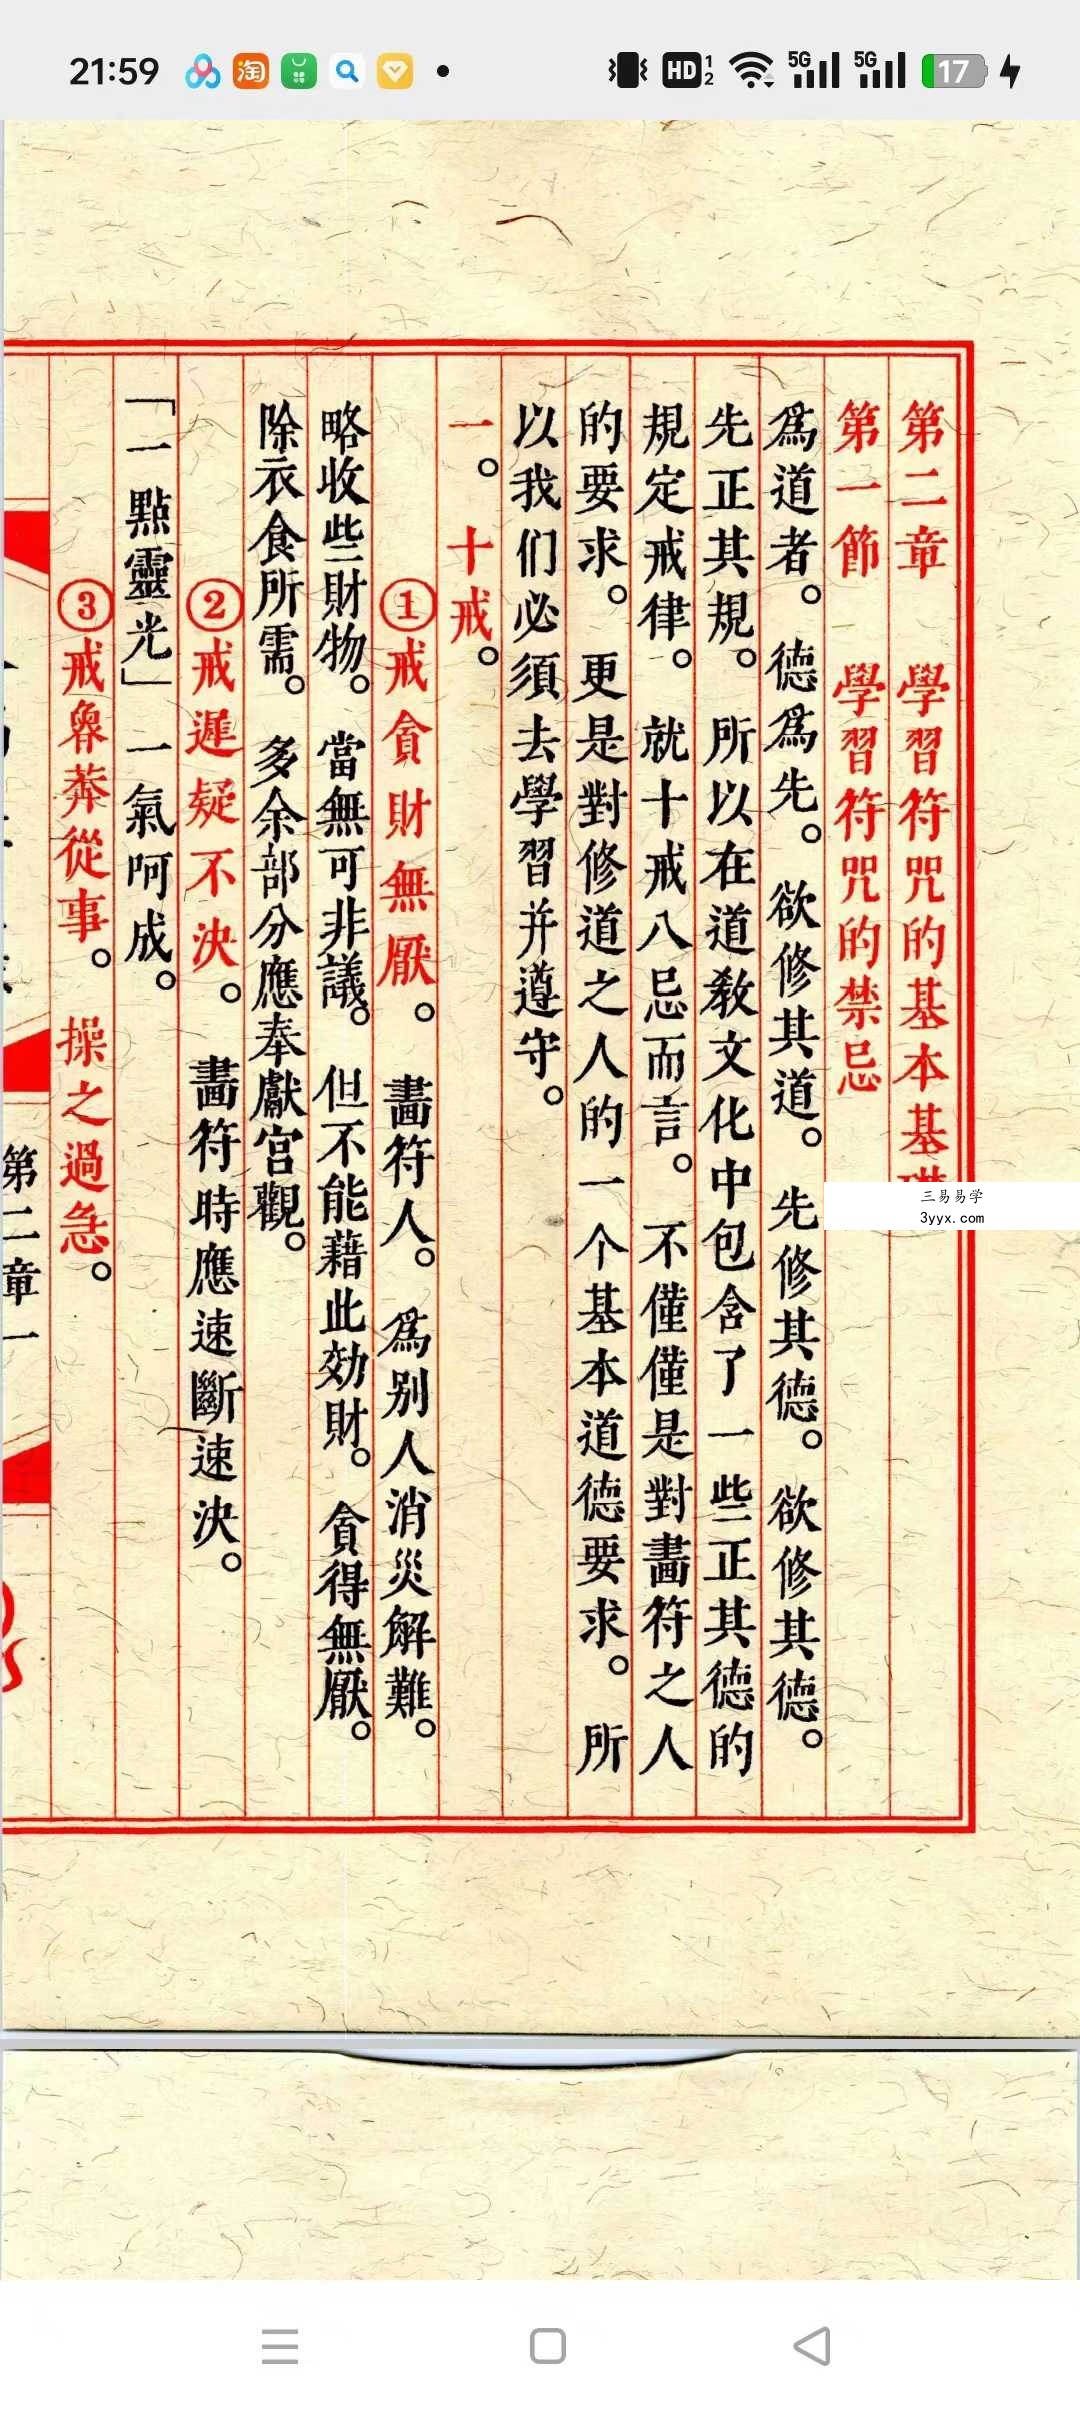 21:59
淘
HD 1 2
5G
5G
17
第二章 學習符咒的基本基礎
第一節 學習符咒的禁忌
爲道者。德爲先。欲修其道。先修其德。欲修其德。
先正其規。所以在道教文化中包含了一些正其德的
規定戒律。就十戒八忌而言。不僅僅是對畵符之人
的要求。更是對修道之人的一个基本道德要求。所
以我们必須去學習并遵守。
一。十戒。
①戒貪財無厭。畵符人。爲别人消災解難。
略收些財物。當無可非議。但不能藉此効財。貪得無厭。
除衣食所需。多余部分應奉獻宫觀。
②戒遲疑不決。畵符時應速斷速決。
「一點靈光」一氣呵成。
③戒魯莽從事。操之過急。
第二章一
三易易学
3yyx.com